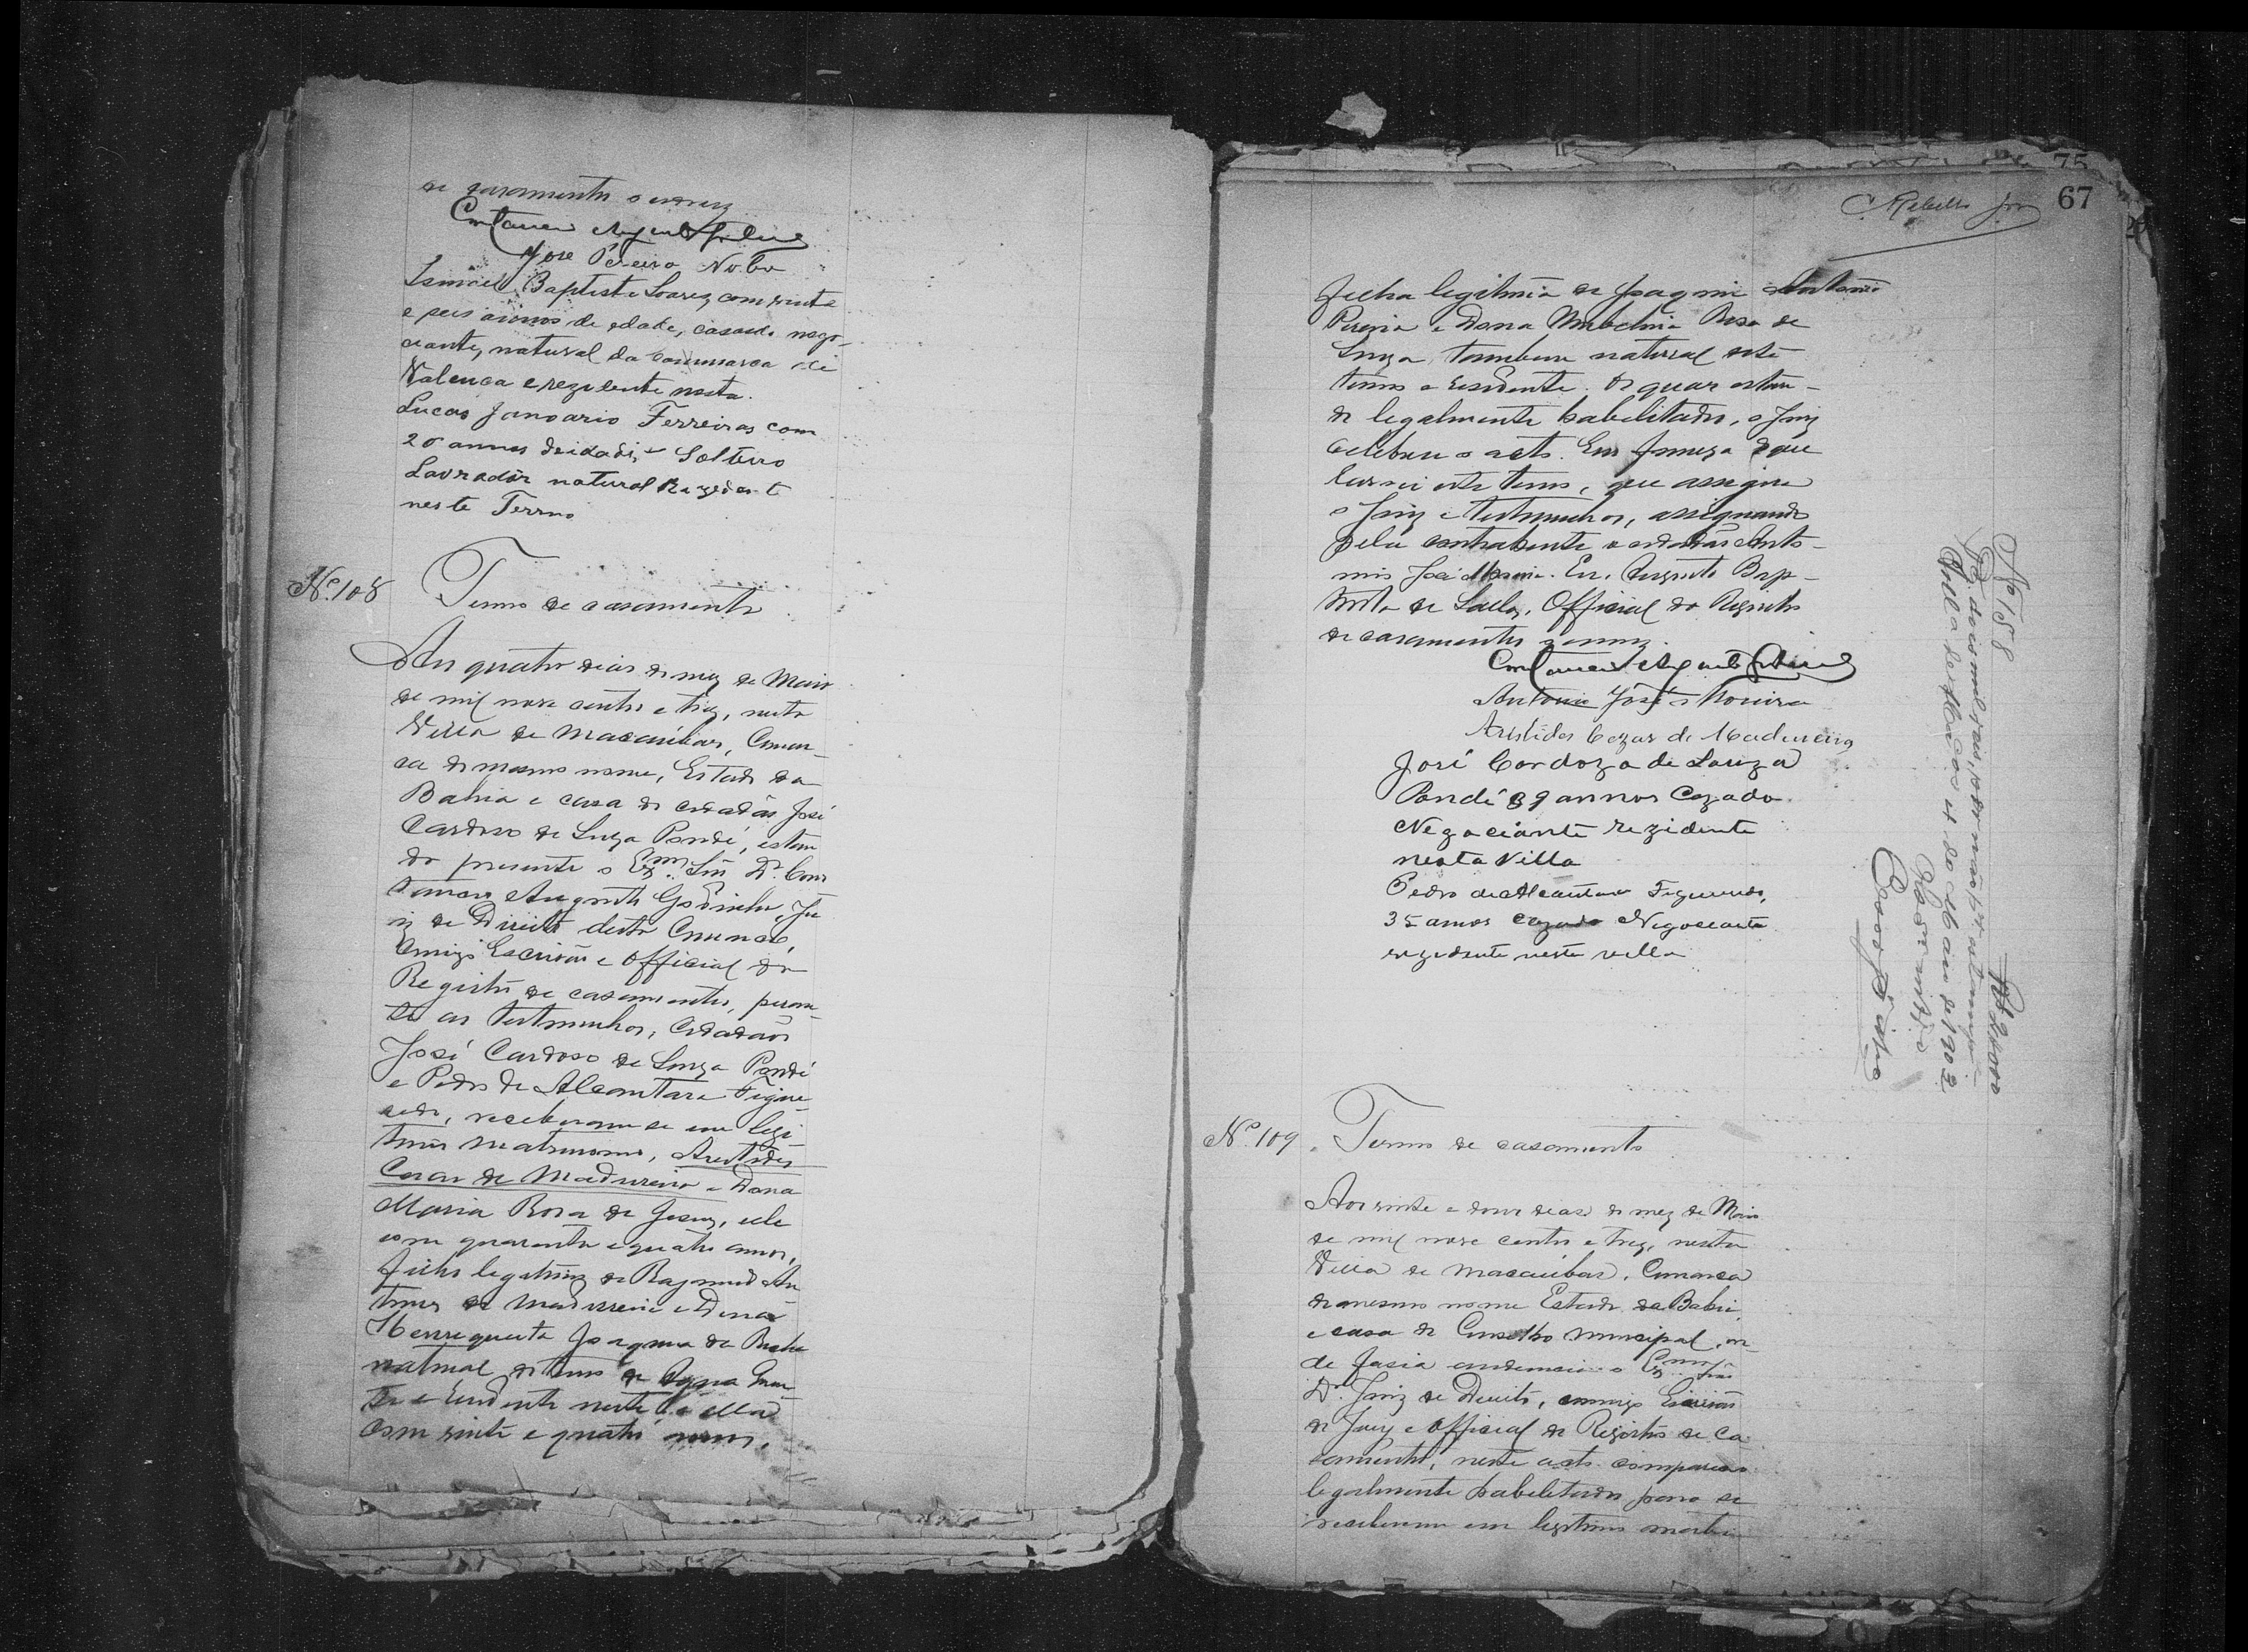 de casamento o escrevy
Constancio Augusto Godinho
José Pereira Nobre
Ismael Baptista Soares, com vinte
e seis annos de edade, casado nego-
ciante, natural da commarca de
Valença e rezidente nesta.
Lucas Janoario Ferreiras com
20 annos deidadi, Solteiro
Lavrador natural Rezedente
neste Termo
Nº 108
Termo de casamento
Aos quatro dias do mez de Maio
de mil nove centos e trez, nesta
Villa de Macaúbas, Comar-
ca do mesmo nome, Estado da
Bahia e casa do cidadão José
Cardoso de Souza Pondé, estan-
do presente o Exmº Snr Dr. Cons
tancio Augusto Godinho, Ju
iz de Direito desta Comarca,
comigo Escrivão e Official do
Registro de casamentos, peran-
te as testemunhas, cidadãos
José Cardoso de Souza Pondé
e Pedro de Alcantara Figue-
redo, receberam se em legi-
timo matrimonio, Aristides
Cezar de Madureira e Dona
Maria Rosa de Jesus, elle
com quarenta e quatro annos,
filho legitimo de Raymundo An
tunes de Madureira e Dona
Henrequeta Joaquina da Rocha
natural do termo de Agua Quen-
te e residente neste e ella
com vinte e quatro annos,
75
67
C. Rebello Jor
filha legitima de Joaquim Antonio
Pereira e Dona Umbelina Rosa de
Souza, tambem natural deste
termo e residente. Os quaes estan-
do legalmente habelitados, o Juiz
celebrou o acto. Em firmeza do que
lavrei este termo, que assigna
o Juiz e testemunhas, assignando
pela contrahente o cidadão Anto-
nio José Moreira. Eu, Augusto Bap-
tista de Salles, Official do Registro
de casamentos escrevy.
Constancio Augusto Godinho
Antonio José Moreira
Aristides Cezar de Madureira
José Cardozo de Souza
Pondé 39 annos Cazado
Negociante rezidente
nesta Villa
Pedro de Alcantara Figueredo,
35 annos cazado Negociante
rezidente nesta villa
Nº 158
Constº Godinho
Nº 109
Termo de casamento
Aos vinte e dous dias do mez de Maio
de mil nove centos e trez, nesta
Villa de Macaúbas, Comarca
do mesmo nome Estado da Bahia,
e casa do Conselho Municipal, on-
de fasia audiencia o Exmº Snr
Dr. Juiz de Direito, commigo Escrivão
do Jury e Official do Registro de Ca
samentos, neste acto compareceram
legalmente habelitados para se
receberem em legitimo matri-